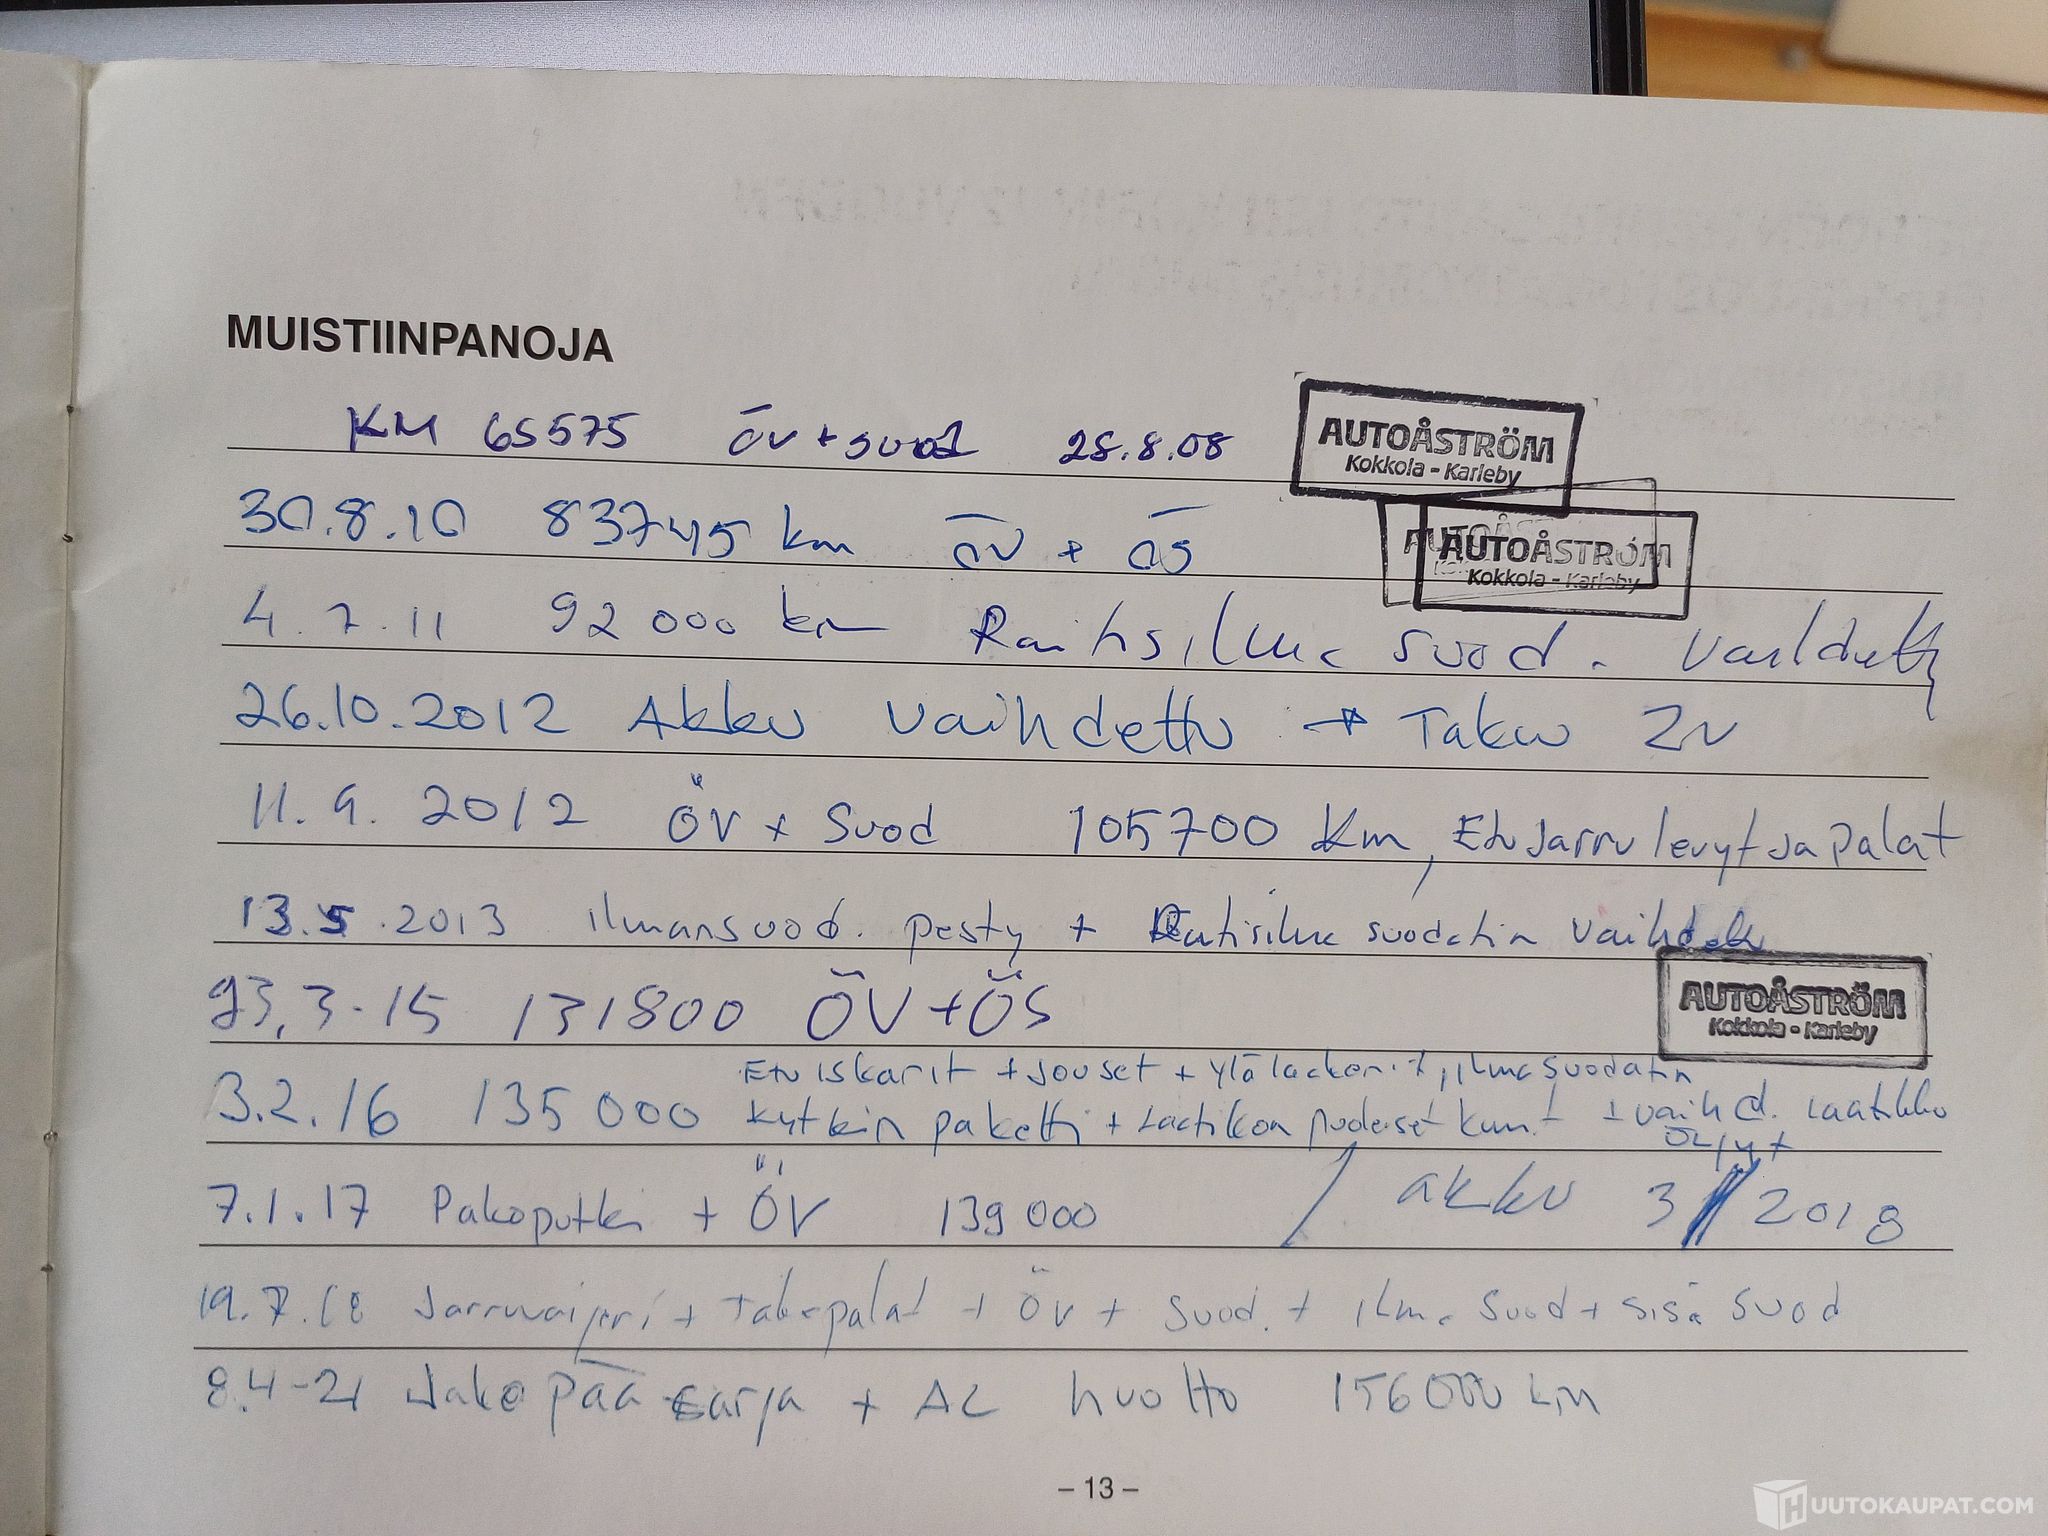 MUISTIINPANOJA
KM 65575 ÖV + suod 28.8.08
AUTOÅSTRÖM
Kokkola - Karleby
30.8.10 83745 km ÖV + ÖS
AUTOÅSTRÖM
Kokkola - Karleby
4.7.11 92 000 km Raitisilma suod. vaihdettu
26.10.2012 Akku vaihdettu → Takuu 2v
11.9.2012 ÖV + Suod 105700 Km, Etujarrulevyt ja palat
13.5.2013 ilmansuod. pesty + Raitisilma suodatin vaihdettu
23.3-15 131800 ÖV+ÖS
AUTOÅSTRÖM
Kokkola - Karleby
Etuiskarit + jouset + ylälaakerit, ilmasuodatin
3.2.16 135 000 Kytkin paketti + Laatikon puoleiset + vaihd. laatikko
öljyt
7.1.17 Pakoputki + ÖV 139 000 / akku 3/2018
19.7.18 Jarruvaijeri + Takapalat + ÖV + Suod. + ilma suod + sisä suod
8.4-21 Jakopää sarja + AC huolto 156000 km
– 13 –
HUUTOKAUPAT.COM